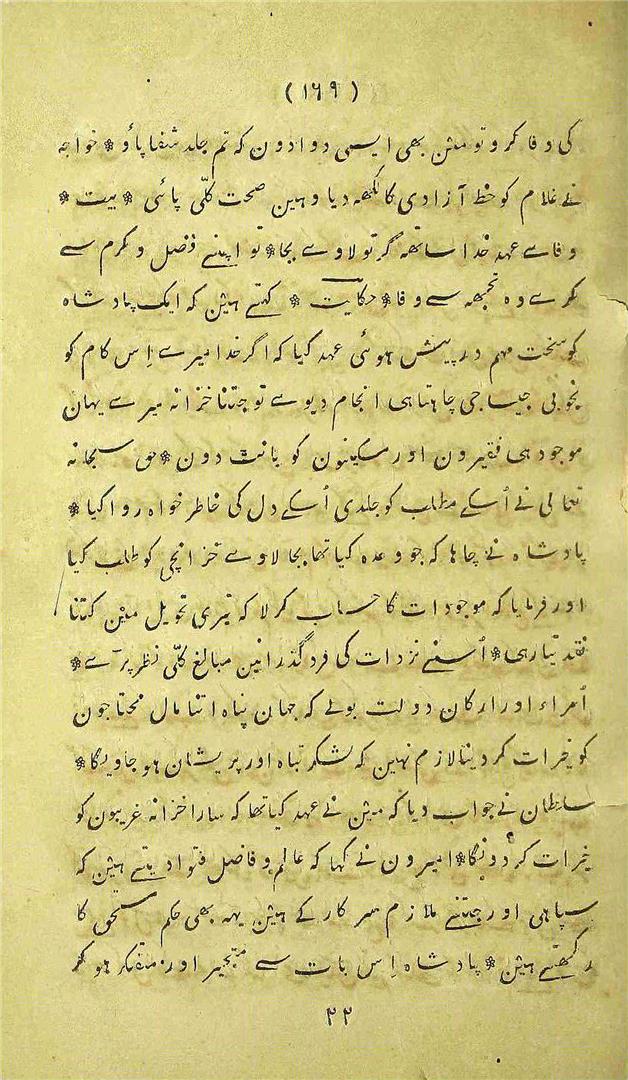 ( ١٦٩ )
کی وفا کرو تو مین بھی ایسی دوا دون کہ تم جلد شفا پاؤ * خواجہ
نے غلام کو خط آزادی کا لکھہ دیا وہین صحت کلّی پائی * بیت *
وفاے عہد خدا ساتھہ گر تو لاوے بجا * تو اپنے فضل و کرم سے
کرے وہ تجھہ سے وفا * حکایت * کہتے ہین کہ ایک پادشاہ
کو سخت مہم درپیش ہوئی عہد کیا کہ اگر خدا میرے اِس کام کو
بخوبی جیسا جی چاہتا ہی انجام دیوے تو جتنا خزانہ میرے یہان
موجود ہی فقیرون اور مسکینون کو بانٹ دون * حق سبحانہ
تعالی نے اُسکے مطلب کو جلدی اُسکے دل کی خاطر خواہ روا کیا *
پادشاہ نے چاہا کہ جو وعدہ کیا تھا بجا لاوے خزانچی کو طلب کیا
اور فرمایا کہ موجودات کا حساب کر لا کہ تیری تحویل مین کتنا
نقد تیار ہی * اُسنے نزدات کی فرد گذرانین مبالغ کلّی نظر پر آے *
اُمراء اور ارکان دولت بولے کہ جہان پناہ اتنا مال محتاجون
کو خیرات کر دینا لازم نہین کہ لشکر تباہ اور پریشان ہو جاویگا *
سلطان نے جواب دیا کہ مین نے عہد کیا تھا کہ سارا خزانہ غریبون کو
خیرات کرونگا * امیرون نے کہا کہ عالم و فاضل فتوا دیتے ہین کہ
سپاہی اور جتنے ملازم سرکار کے ہین یہہ بھی حکم مستحق کا
رکھتے ہین * پادشاہ اِس بات سے متحیر اور متفکر ہو کر
٢٢